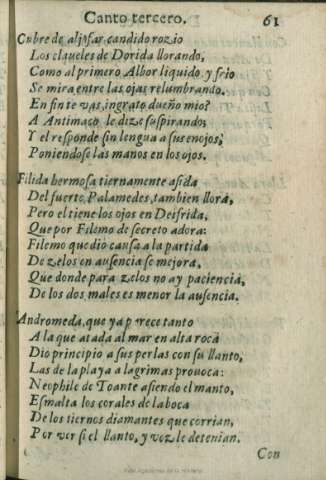 Canto tercero. 61
Cubre de aljofar candido rozio
Los claueles de Dorida llorando,
Como al primero Albor liquido, y frio
Se mira entre las ojas relumbrando.
En fin te vas, ingrato dueño mio?
A Antimaco le dize suspirando;
Y el responde sin lengua a sus enojos,
Poniendose las manos en los ojos.
Filida hermosa tiernamente asida
Del fuerte Palamedes, tambien llora,
Pero el tiene los ojos en Deifrida,
Que por Filemo de secreto adora:
Filemo que dio causa a la partida
De zelos en ausencia se mejora,
Que donde para zelos no ay paciencia,
De los dos males es menor la ausencia.
Andromeda, que ya parece tanto
A la que atada al mar en alta roca
Dio principio a sus perlas con su llanto,
Las de la playa a lagrimas prouoca:
Neophile de Toante asiendo el manto,
Esmalta los corales de la boca
De los tiernos diamantes que corrian,
Por ver si el llanto, y voz le detenian.
Con